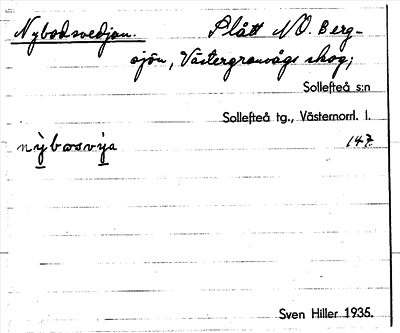 Nybodsvedjan. Slått NO. Berg-
sjön, Västergranvågs skog;
Sollefteå s:n
Sollefteå tg., Västernorrl. l.
147.
Sven Hiller 1935.